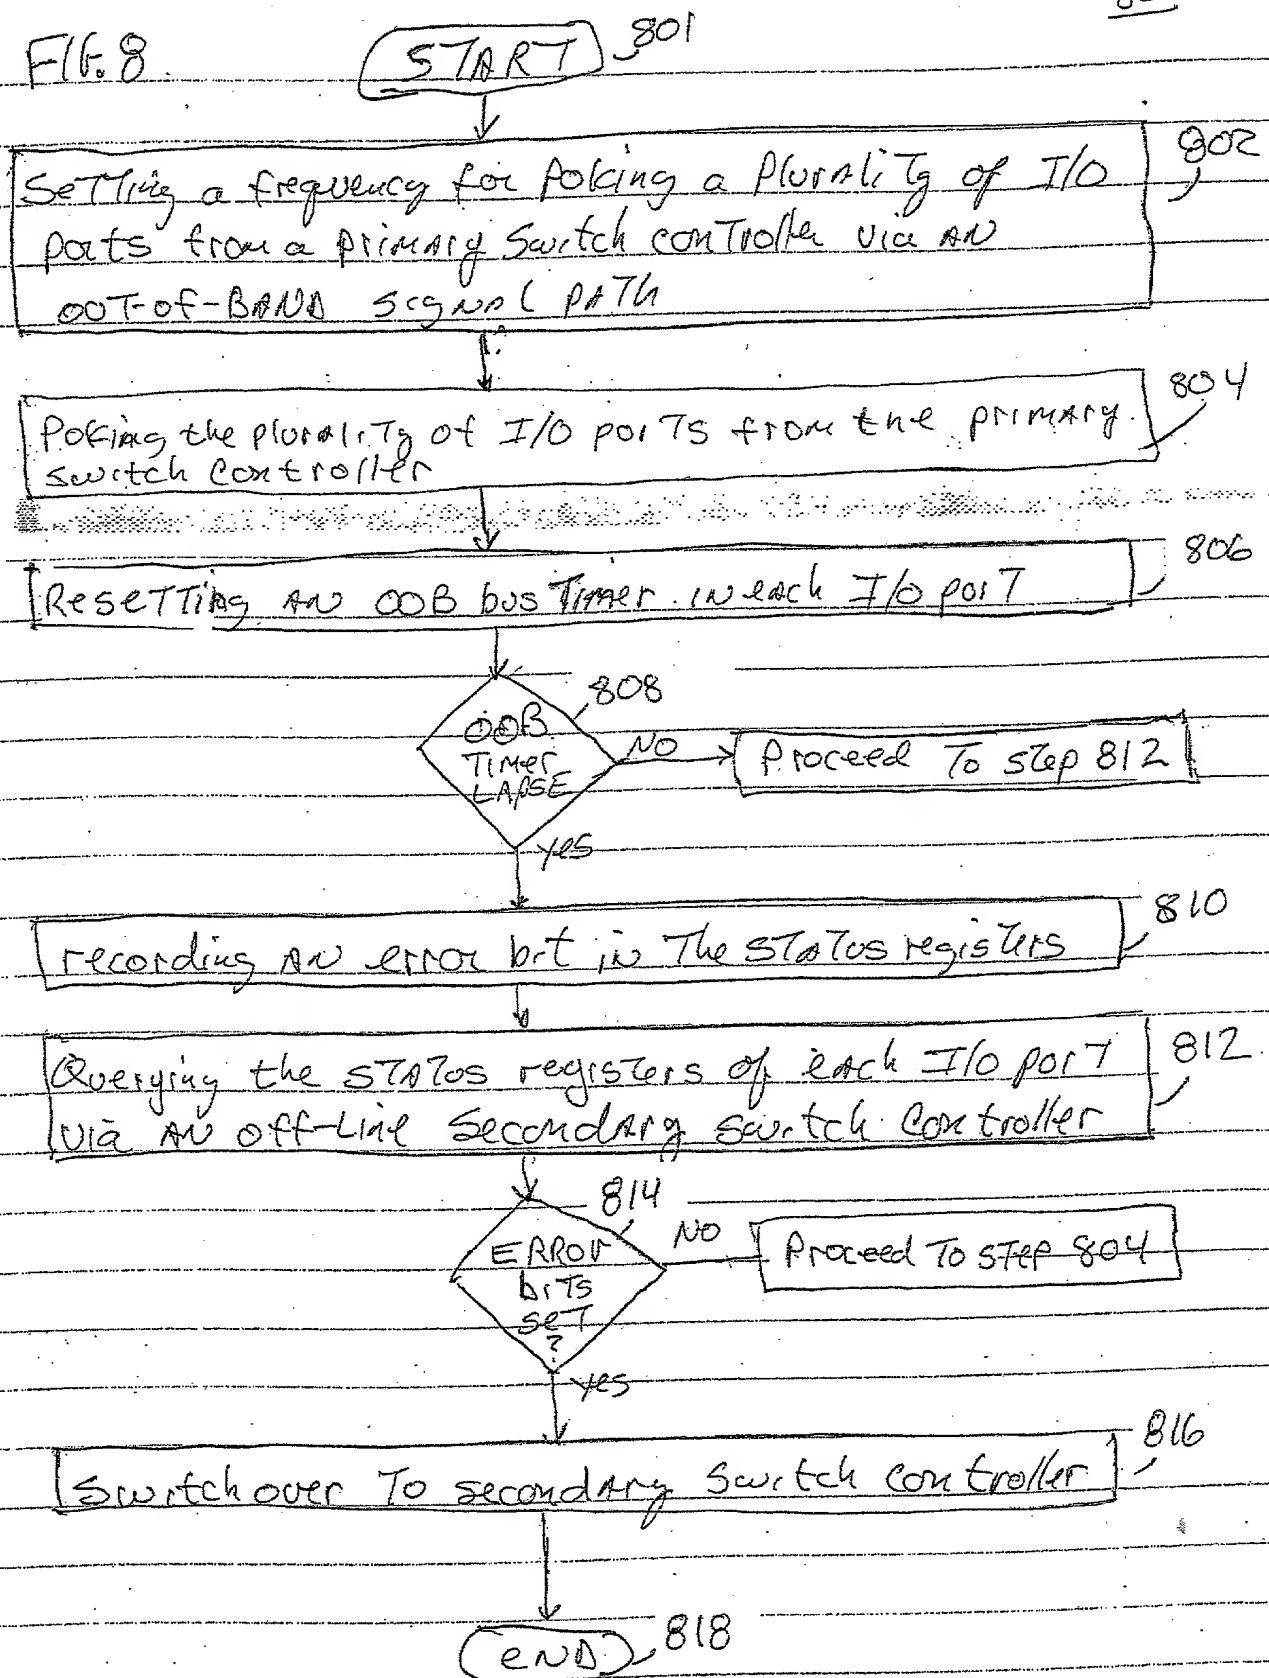 FIG. 8
START 801
802
Setting a frequency for Poking a Plurality of I/O
ports from a primary switch controller via AN
OOT-of-BAND signal PATH
804
Poking the plurality of I/O ports from the primary
switch controller
806
Resetting AN OOB bus Timer in each I/O port
808
OOB
Timer
LAPSE
NO
Proceed To step 812
yes
810
recording AN error bit in The STATUS registers
812
Querying the STATUS registers of each I/O port
via AN off-Line Secondary switch controller
814
ERROR
bits
set
?
NO
Proceed To step 804
yes
816
Switch over To secondary Switch controller
END 818